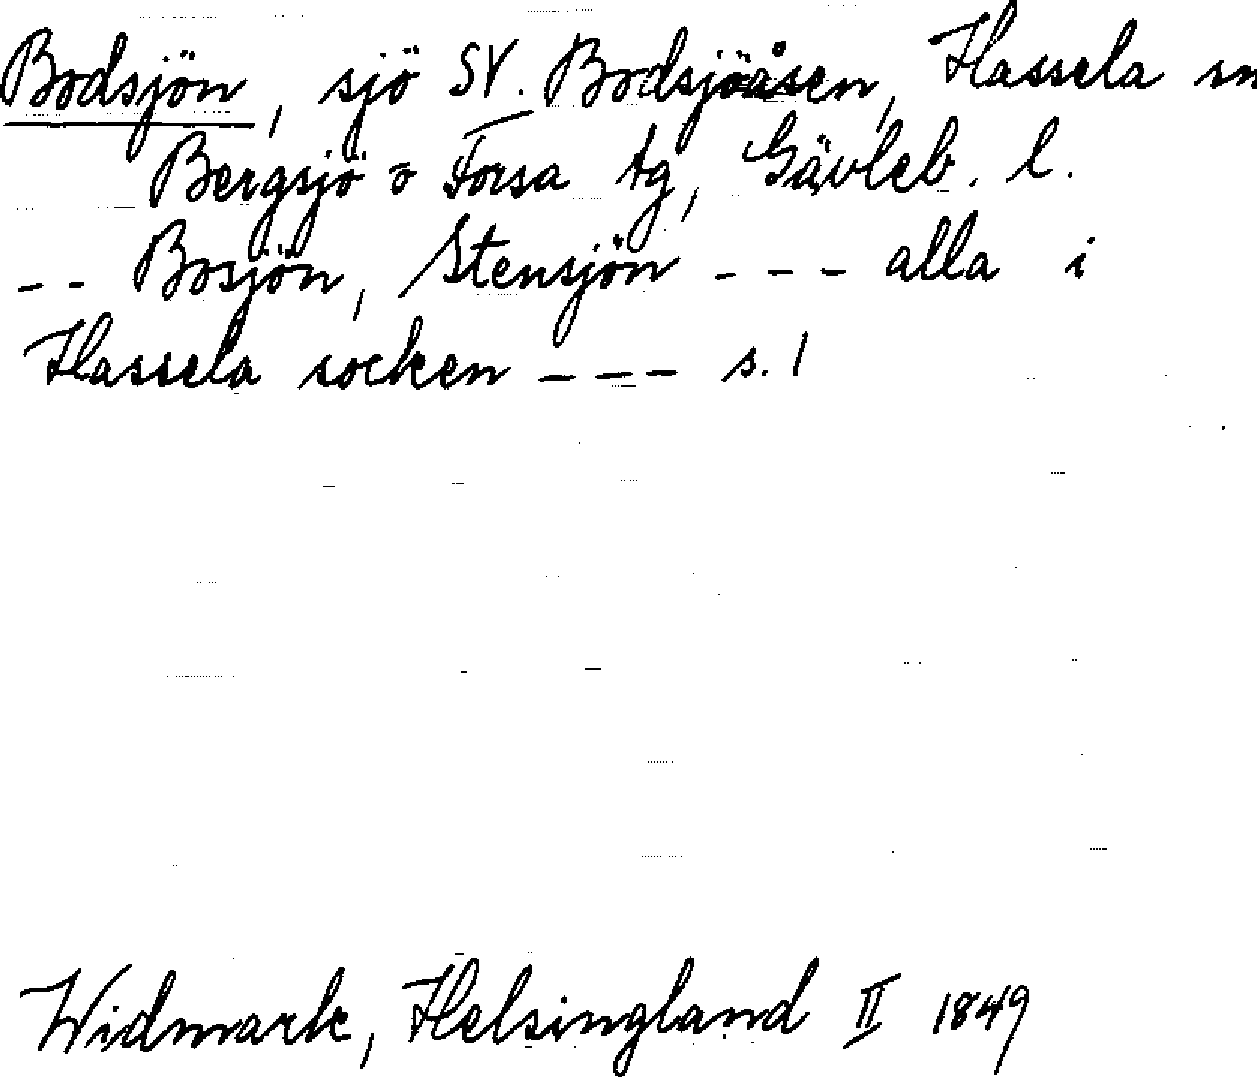 Bodsjön, sjö SV. Bodsjöåsen, Hassela sn
Bergsjö o Forsa tg, Gävleb. l.
-- Bosjön, Stensjön --- alla i
Hassela socken --- s. 1
Widmark, Helsingland II 1849